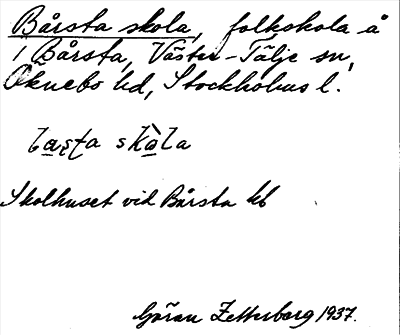 Bårsta skola, folkskola å
1 Bårsta, Väster-Tälje sn,
Öknebo hd, Stockholms l.
skola
Skolhuset vid Bårsta kb
Göran Zetterberg 1937.